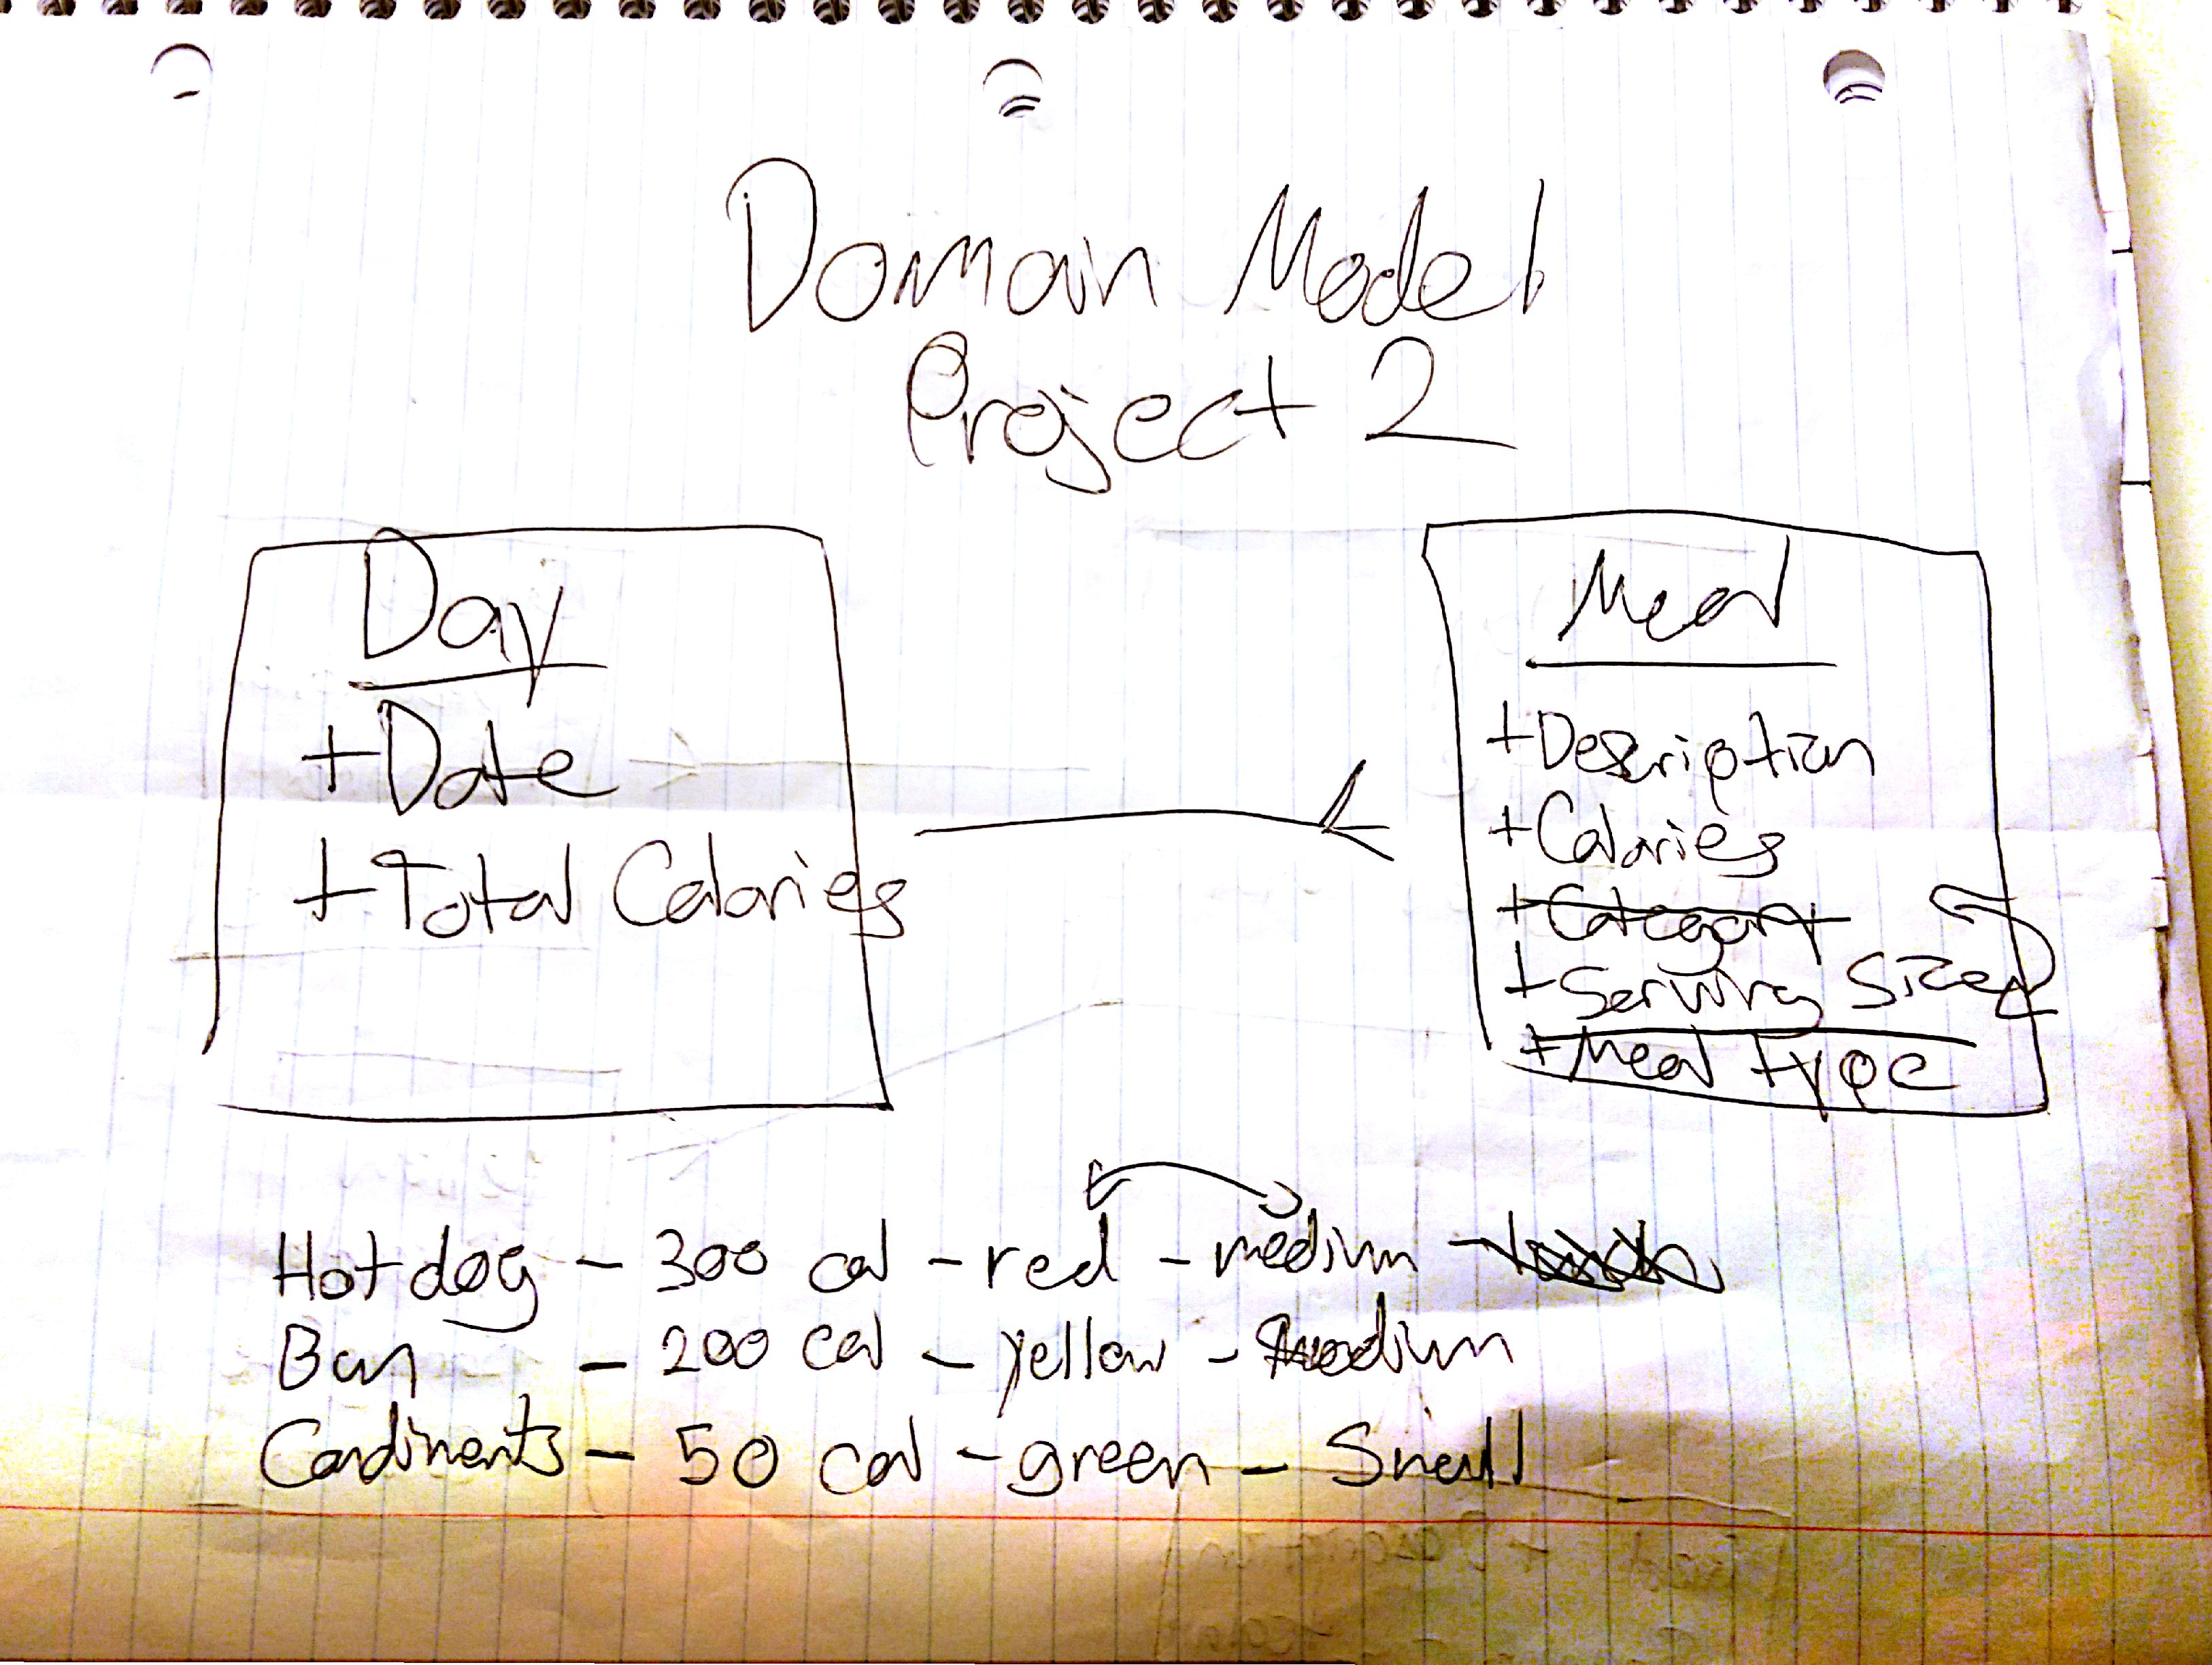 Domain Model
Project 2
Day
+Date
+Total Calories
Meal
+Description
+Calories
+Category
+Serving Size
+Meal type
Hotdog - 300 cal - red - medium - lunch
Bun - 200 cal - yellow - medium
Condiments - 50 cal - green - Small